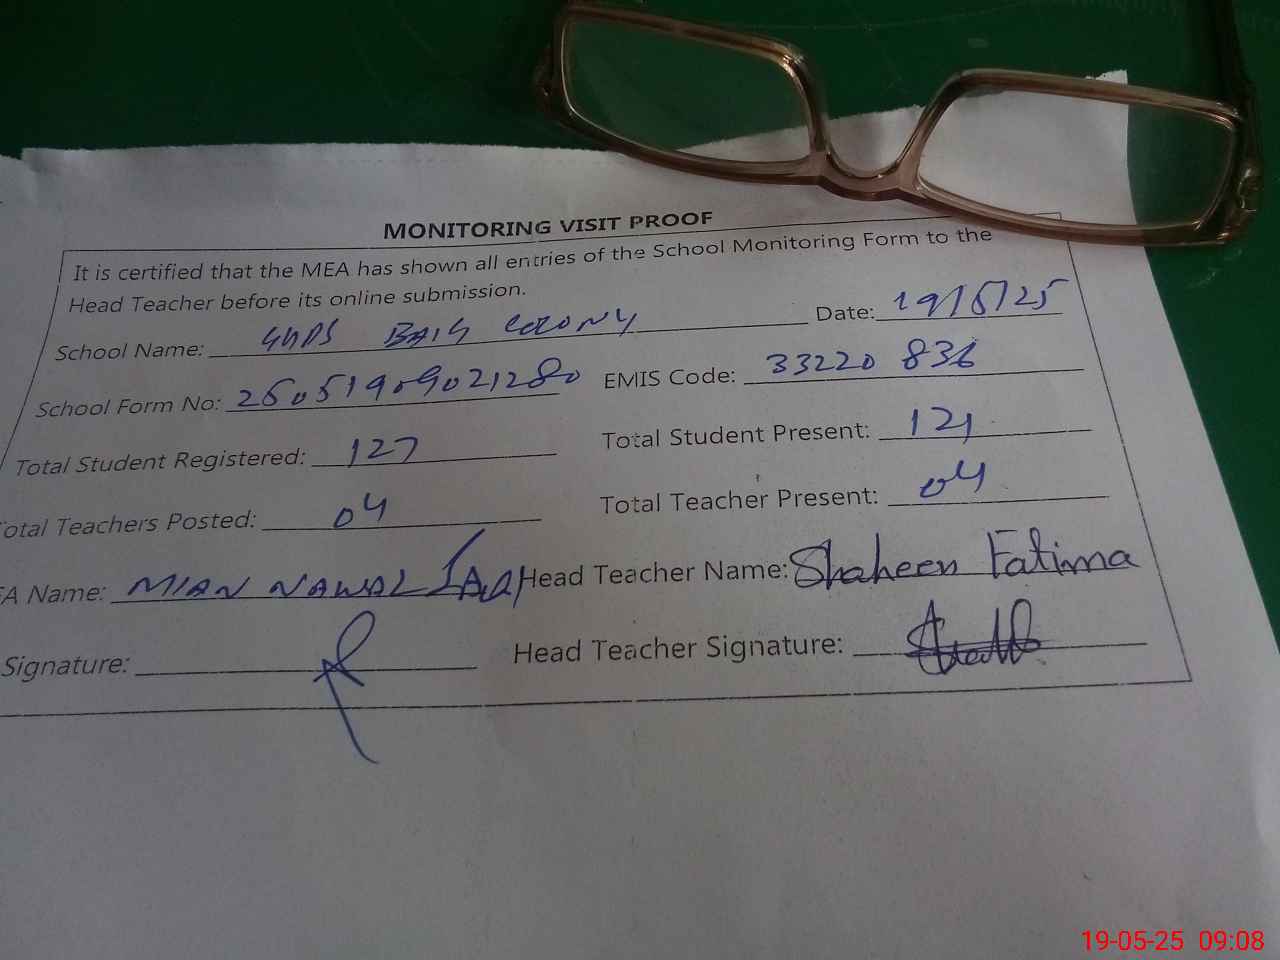 MONITORING VISIT PROOF
It is certified that the MEA has shown all entries of the School Monitoring Form to the
Head Teacher before its online submission.
School Name: GHPS BAIG COLONY Date: 19/5/25
School Form No: 25051909021280 EMIS Code: 33220 836
Total Student Registered: 127 Total Student Present: 121
otal Teachers Posted: 04 Total Teacher Present: 04
EA Name: MIAN NAWAL Head Teacher Name: Shaheen Fatima
Signature: Head Teacher Signature:
19-05-25 09:08